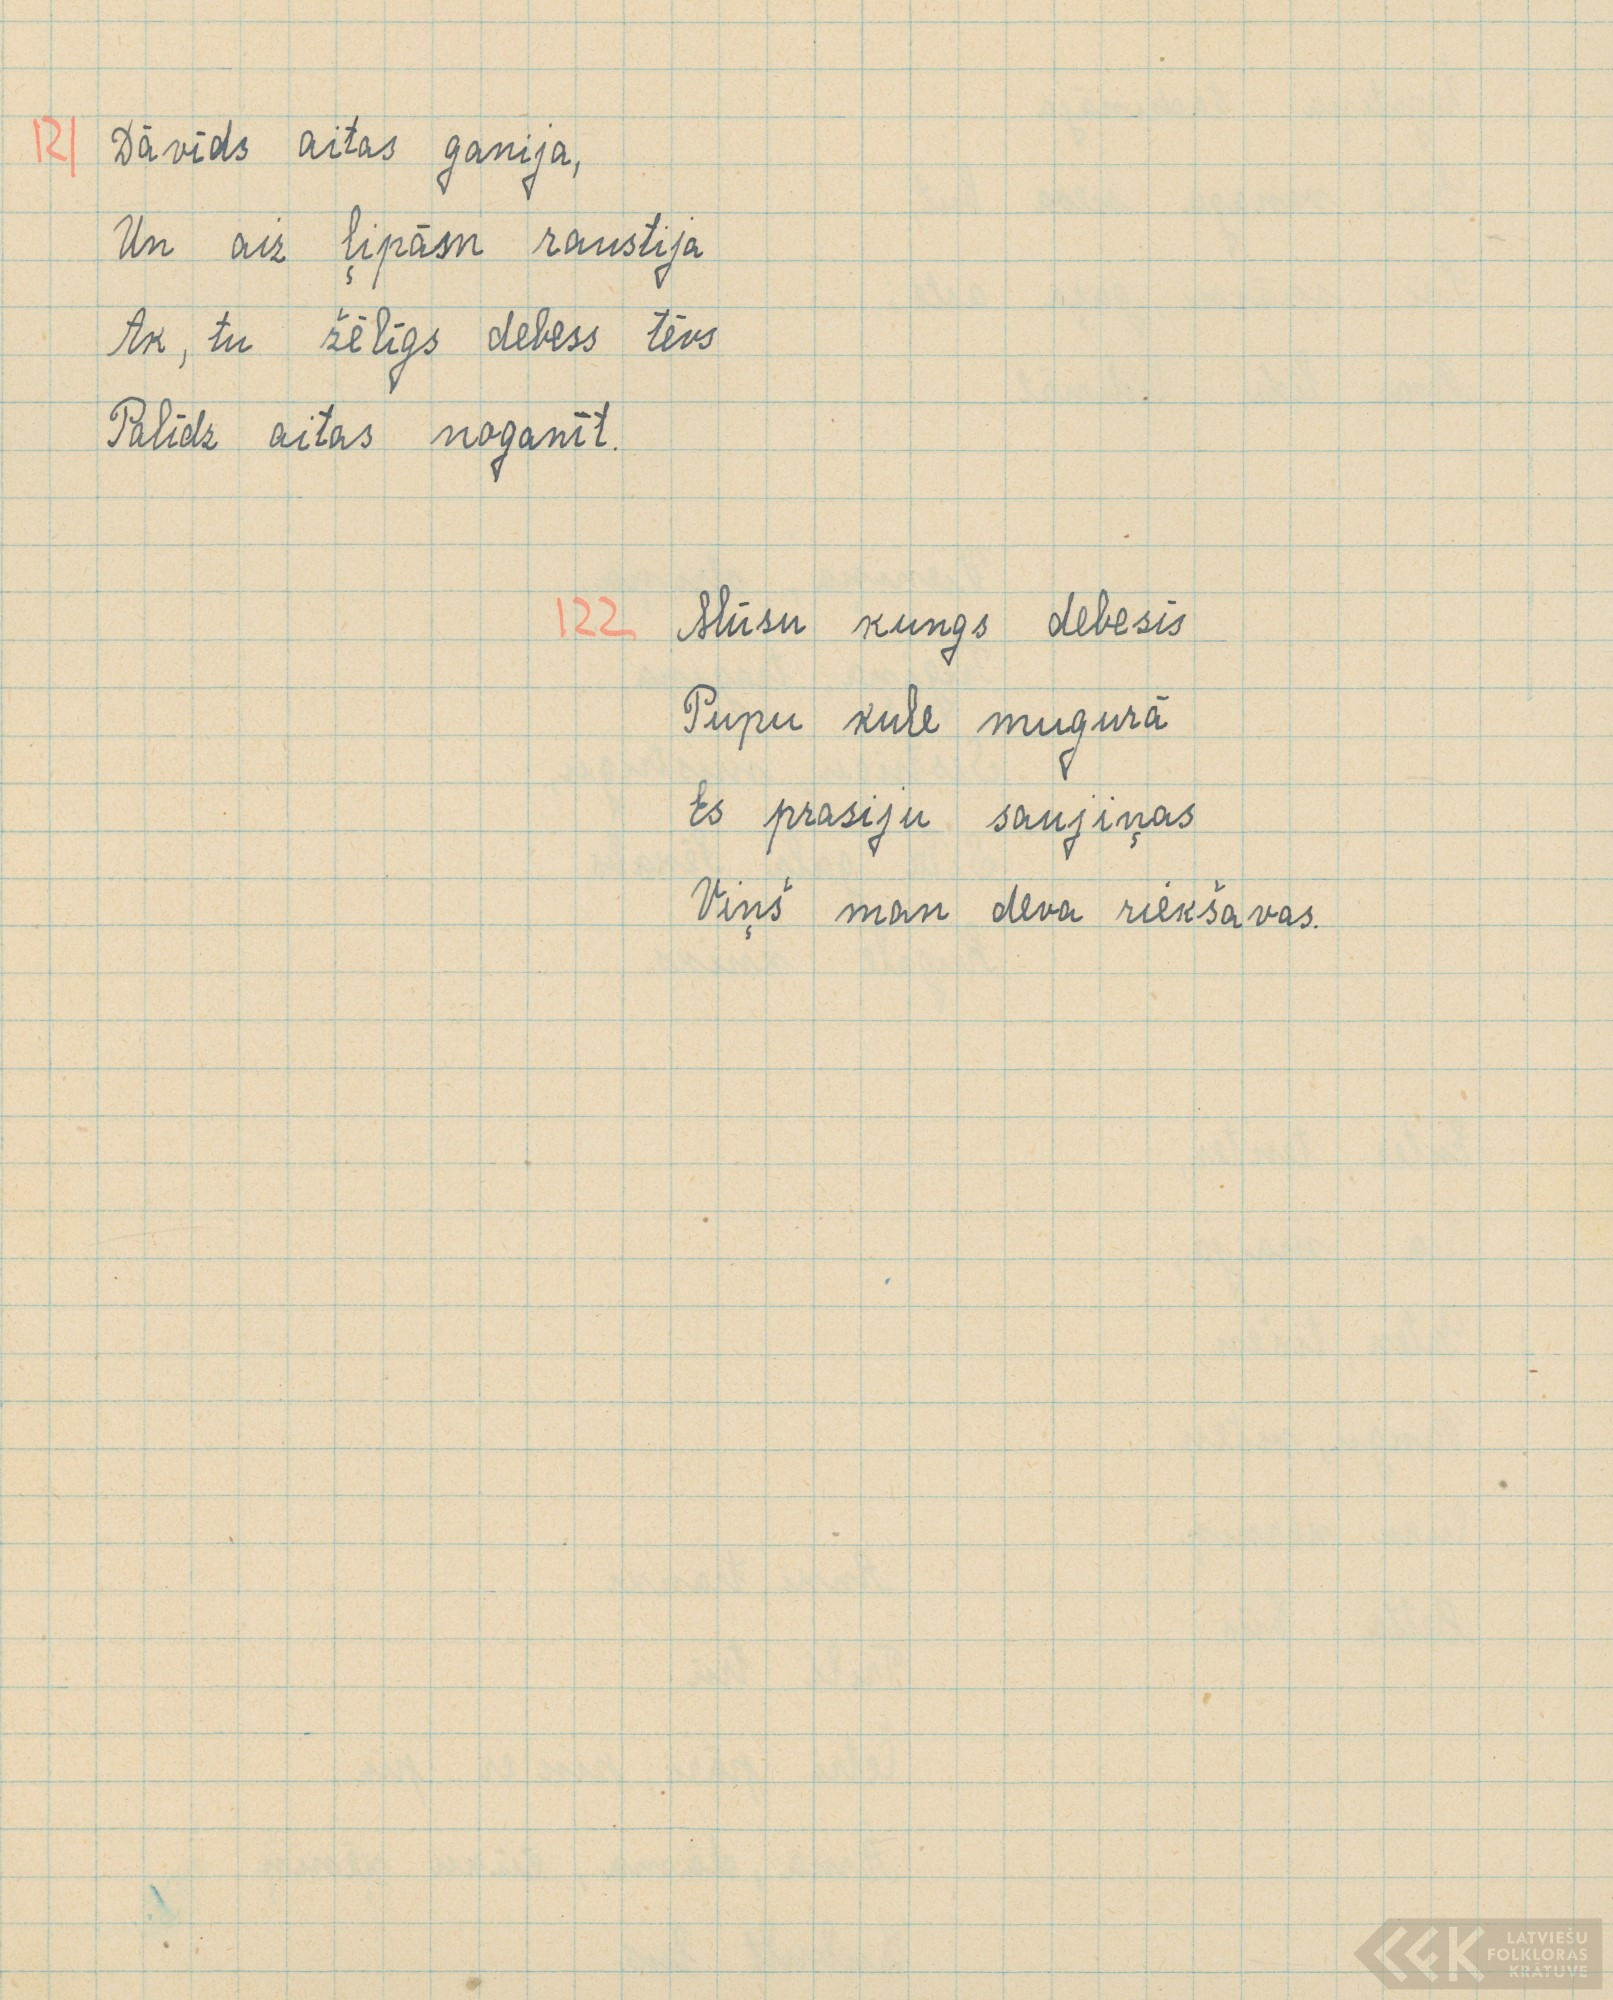 121 Dāvīds aitas ganija,
Un aiz ļipāsn raustija
Ak, tu žēlīgs debess tēvs
Palīdz aitas noganīt.
122 Mūsu kungs debesīs
Pupu kule mugurā
Es prasiju saujiņas
Viņš man deva riekšavas.
LATVIEŠU
FOLKLORAS
KRĀTUVE